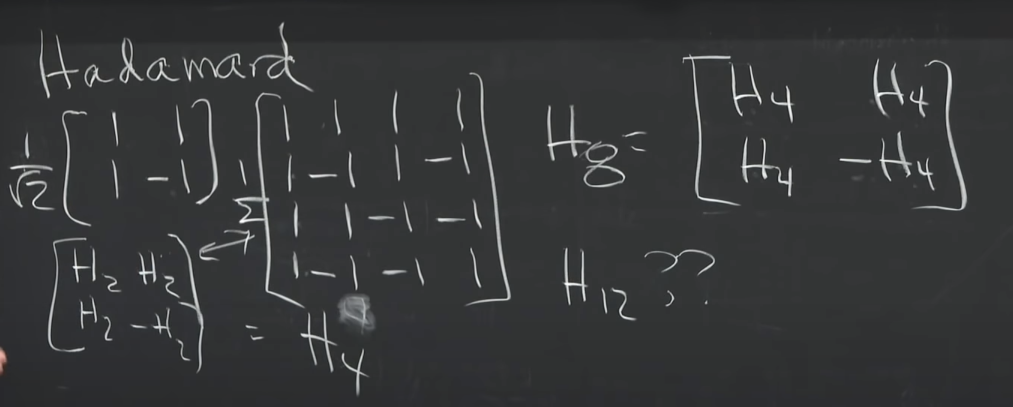 Hadamard
1/√2 [1 1
1 -1]
1/2 [1 1 1 1
1 -1 1 -1
1 1 -1 -1
1 -1 -1 1]
[H₂ H₂
H₂ -H₂] = H₄
H₈ = [H₄ H₄
H₄ -H₄]
H₁₂ ??